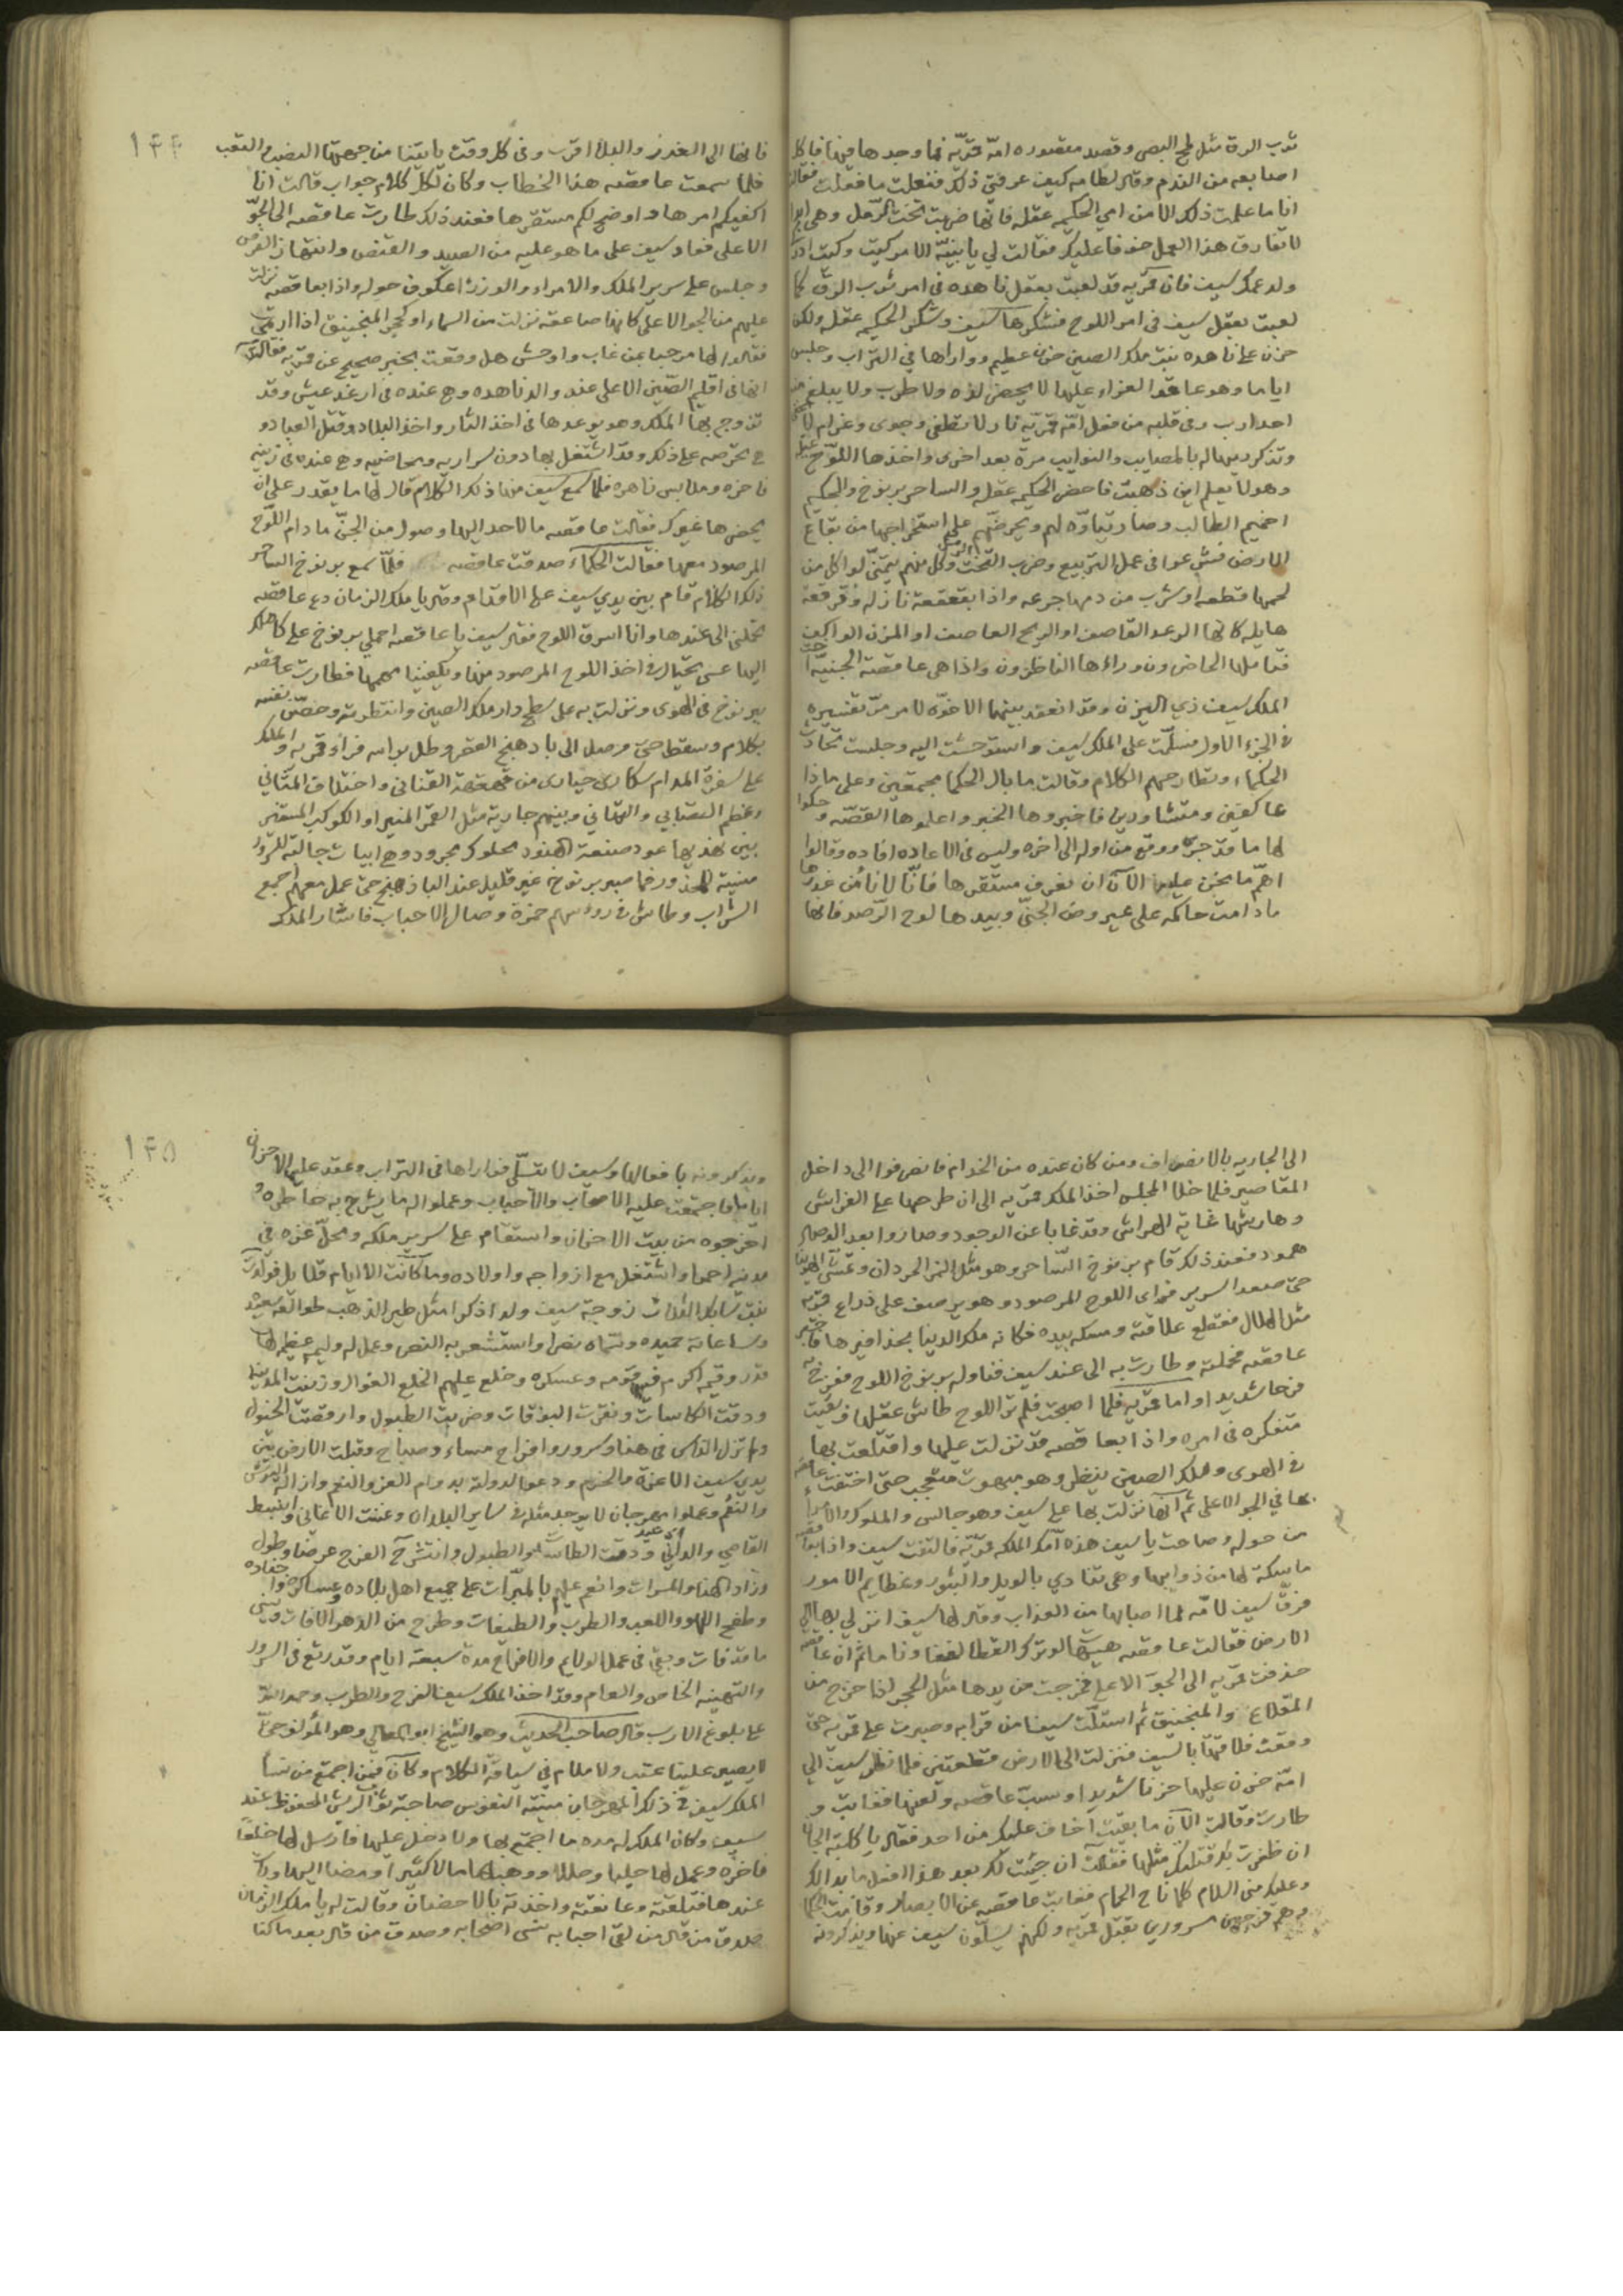 ثوب الرق مثل طرح البصر وقصد مقصوره امّه قمريّه فما وجدها فيها فاكل
اصابعه من الندم وقال لعاقصه كيف عرفتي ذلك وفعلت ما فعلت فقالت
انا ما علمت ذلك الا من امي الحكيمه عقله فانها ضربت تخت الرمل وهي ابدا
لا تفارق هذا العمل خوفا عليك فقالت لي يا بنيّة الامر كيت وكيت
ولد عمك سيف فان قمريه قد لعبت بعقل ناهده في امر ثوب الرق كما
لعبت بعقل سيف في امر اللوح فشكرها سيف وشكر الحكيمه عقله ولكن
حزن على ناهده بنت ملك الصين حزن عظيم وواراها في التراب وجلس
اياما وهو عاقد العزاء عليها لا يحضر لذه ولا طرب ولا يبلغ من
احد ارب وفي قلبه من فعل امّه قمريّه نار لا تطفى وجوى وغرام لا يخفى
وتذكر رميها له بالمصايب والنوايب مرة بعد اخرى واخذها اللوح
وهو لا يعلم اين ذهبت فاحضر الحكيمه عقله والساحر برنوخ والحكيم
اخميم الطالب وصار يتاوّه لهم ويحرضهم على استخراجها من بقاع
الارض فشرعوا في عمل التربيع وضرب التخت الرمل وكل منهم يتمنّى لو اكل من
لحمها قطعه او شرب من دمها جرعه واذا بقعقعة نازله وفرقعة
هايله كانها الرعد القاصف او الريح العاصف او المزن الواكف
فتاملها الحاضرون وراءها الناظرون واذا هي عاقصة الجنيّة اخت
الملك سيف ذي اليزن وقد انعقد بينهما الاخوّه لامر مرّ تفسيره
في الجزء الاول فسلّمت على الملك سيف واستوحشت اليه وجلست تحادث
الحكماء وتطارحهم الكلام وقالت ما بال الحكما مجتمعين وعلى ماذا
عاكفين ومتشاورين فاخبروها الخبر واعلموها القصّه وحكوا
لها ما قد جرى ووقع من اوله الى اخره وليس في الاعاده افاده وقالوا
اهمّ ما يحزن علينا الآن ان نعرف مستقرها فانّا لا نأمن غدرها
ما دامت حاكمه على عيروض الجنّي وبيدها لوح الرّصد فانها
١٤٤
فانها الى الغدر والبلا اقرب وفي كل وقت ياتينا من جهتها النصب والتعب
فلما سمعت عاقصه هذا الخطاب وكان لكل كلام جواب قالت انا
اكفيكم امرها واوضح لكم مستقرّها فعند ذلك طارت عاقصه الى الجوّ
الاعلى فعاد سيف على ما هو عليه من الصيد والقنص وانتهاز الفرص
وجلس على سرير الملك والامراء والوزراء عكوف حوله واذا بعاقصه نزلت
عليهم من الجو الاعلى كانها صاعقه نزلت من السماء او كحجر المنجنيق اذا ارتمى
فقالوا لها مرحبا بمن غاب واوحش هل وقعت بخبر صحيح عن قمريه فقالت
انها في اقليم الصّين الاعلى عند والد ناهده وهي عنده في ارغد عيش وقد
تزوج بها الملك وهو يوعدها في اخذ الثار واخذ البلاد وقتل العباد و
هي تحرّصه على ذلك وقد اشتغل بها دون سراريه ومحاضيه وهي عنده في زينه
فاخره وملابس زاهره فلما سمع سيف منها ذلك الكلام قال لها ما يقدر على ان
يحضرها غيرك فقالت عاقصه ما لاحد اليها وصول من الجنّ ما دام اللّوح
المرصود معها فقالت الحكماء صدقت عاقصه فلمّا سمع برنوخ الساحر
ذلك الكلام قام بين يدي سيف على الاقدام وقال يا ملك الزمان دع عاقصه
تحملني الى عندها وانا اسرق اللوح فقال سيف يا عاقصه احملي برنوخ على كاهلك
اليها عسى يحتال في اخذ اللوح المرصود منها ويكفينا مهمها فطارت عاقصه
ببرنوخ في الهوى ونزلت به على سطح دار ملك الصين وانتظرته وحصّن نفسه
بكلام وسقط حتى وصل الى بادهنج القصر وطل براسه فرأى قمريه والملك
على سفرة المدام سكارى حيارى من قهقهة القناني واختلاف المثاني
ونغم الستاني والتهاني وبينهم جارية مثل القمر المنير او الكوكب المستنير
بين نهديها عود صنعة الهنود محلوك مجرود وهي ابيات جالبة للسرور
منسية للحذور فما صبر برنوخ غير قليل عند الباذهنج حتى عمل معهم اجمع
الشراب وطاش في رووسهم خمرة وصال الاحباب فاشار الملك
الى الجاريه بالانصراف ومن كان عنده من الخدام فانصرفوا الى داخل
المقاصير فلما خلا المجلس اخذ الملك قمريه الى ان طرحها على الفراش
وهارشها غاية الهراش وقد غابا عن الوجود وصاروا بعد الوصال
همود فعند ذلك قام برنوخ السّاحر وهو مثل النمر الحردان وتمشّى الهوينا
حتى صعد السرير فراى اللوح المرصود وهو يرصف على ذراع قمريه
مثل الهلال فقطع علاقته ومسكه بيده فكانه ملك الدنيا بحذافيرها
عاقصه فحملته وطارت به الى عند سيف فناوله برنوخ اللوح ففرح به
فرحا شديدا واما قمريه فلما اصبحت فلم تر اللوح طاش عقلها وبقيت
متفكره في امره واذا بعاقصه قد نزلت عليها واقتلعت بها
في الهوى وملك الصين ينظر وهو مبهوت متعجب حتى اختفت عاقصه
بها في الجو الاعلى ثم انها نزلت بها على سيف وهو جالس والملوك والامراء
من حوله وصاحت يا سيف هذه امّك الملكه قمريّه فالتفت سيف واذا بعاقصه
ماسكة لها من ذوايبها وهي تنادي بالويل والثبور وعظايم الامور
فرقّ سيف لامّه لما اصابها من العذاب وقال لها سيف انزلي بها الى
الارض فقالت عاقصه هيهات لو ترك القطا لغفا وناما ثم ان عاقصه
حذفت قمريه الى الجوّ الاعلى فخرجت من يدها مثل الحجر اذا خرج من
المقلاع والمنجنيق ثم استلّت سيفا من قرابه وصبرت على قمريه حتى
وقعت فلاقتها بالسيف فنزلت الى الارض قطعتين فلما نظر سيف الى
امّه حزن عليها حزنا شديدا وسبّ عاقصه ولعنها فغابت و
طارت وقالت الآن ما بقيت اخاف عليك من احد فقال يا كلبة الجان
ان ظفرت بك قتلتك مثلها فقالت ان جيت لك بعد هذا افعل ما بدا لك
وعليك مني السلام كلما ناح الحمام فغابت عاقصه عن الابصار وقامت الحكما
وهم فرحين مسرورين بقتل قمريه ولكنهم يسلّون سيف عنها ويذكرونه
١٤٥
ويذكرونه بافعالها وسيف لا يتسلّى فواراها في التراب وعقد عليها الاحزان
اياما فاجتمعت عليه الاصحاب والاحباب وعملوا له ما يشرح به خاطره و
اخرجوه من بيت الاحزان واستقام على سرير ملكه ومحلّ عزه في
مدينة احمرا واشتغل مع ازواجه واولاده وما كانت الا ايام قلايل فولدت
بنت زوجة سيف ولدا ذكرا مثل طير الذهب طوالعه سعيده
وساعاته حميده وسمّاه نصرا واستشعر به النصر وعمل له وليمه عظيمه لها
قدر وقيمه اكرم فيها قومه وعسكره وخلع عليهم الخلع الغوال وزينت المدينه
ودقت الكاسات ونعرت البوقات وضربت الطبول وارقصت الخيول
ولم تزل الناس في هنا وسرور وافراح مساء وصباح وقبلت الارض بين
يدي سيف الاعزة والخدم ودعوا لدولته بدوام العز والنعم وازالة البؤس
والنقم وعملوا مهرجان لا يوجد مثله في ساير البلدان وغنت الاغاني وانبسط
القاصي والداني ودقت الطاسات والطبول وانتشر الفرح عرضا وطول
وزاد الهنا والمسرات وانعم عليهم بالمبرّات على جميع اهل بلاده وعساكره واجناده
وطفح اللهو واللعب والطرب والطيفات وطرح من الدهر الافات ونسي
ما قد فات وبقي في عمل الولايم والافراح مدة سبعة ايام وقد رتع في السرور
والتهنيه الخاص والعام وقد اخذ الملك سيف الفرح والطرب وحمد الله
على بلوغ الارب قال صاحب الحديث وهو الشيخ ابو المعالي وهو المؤلف حتى
لا يصير علينا عتب ولا ملام في سياقة الكلام وكان فيمن اجتمع من نسا
الملك سيف في ذلك المهرجان منية النفوس صاحبة ثوب الريش المحفوظ عند
سيف وكان الملك له مده ما اجتمع بها ولا دخل عليها فارسل لها خلعا
فاخره وعمل لها حليا وحللا ووهبها مالا كثيرا ومضا اليها
عندها فتلقته وعانقته واخذته بالاحضان وقالت له يا ملك الزمان
صدق من قال من لقي احبابه نسي اصحابه وصدق من قال بعد ما كنا